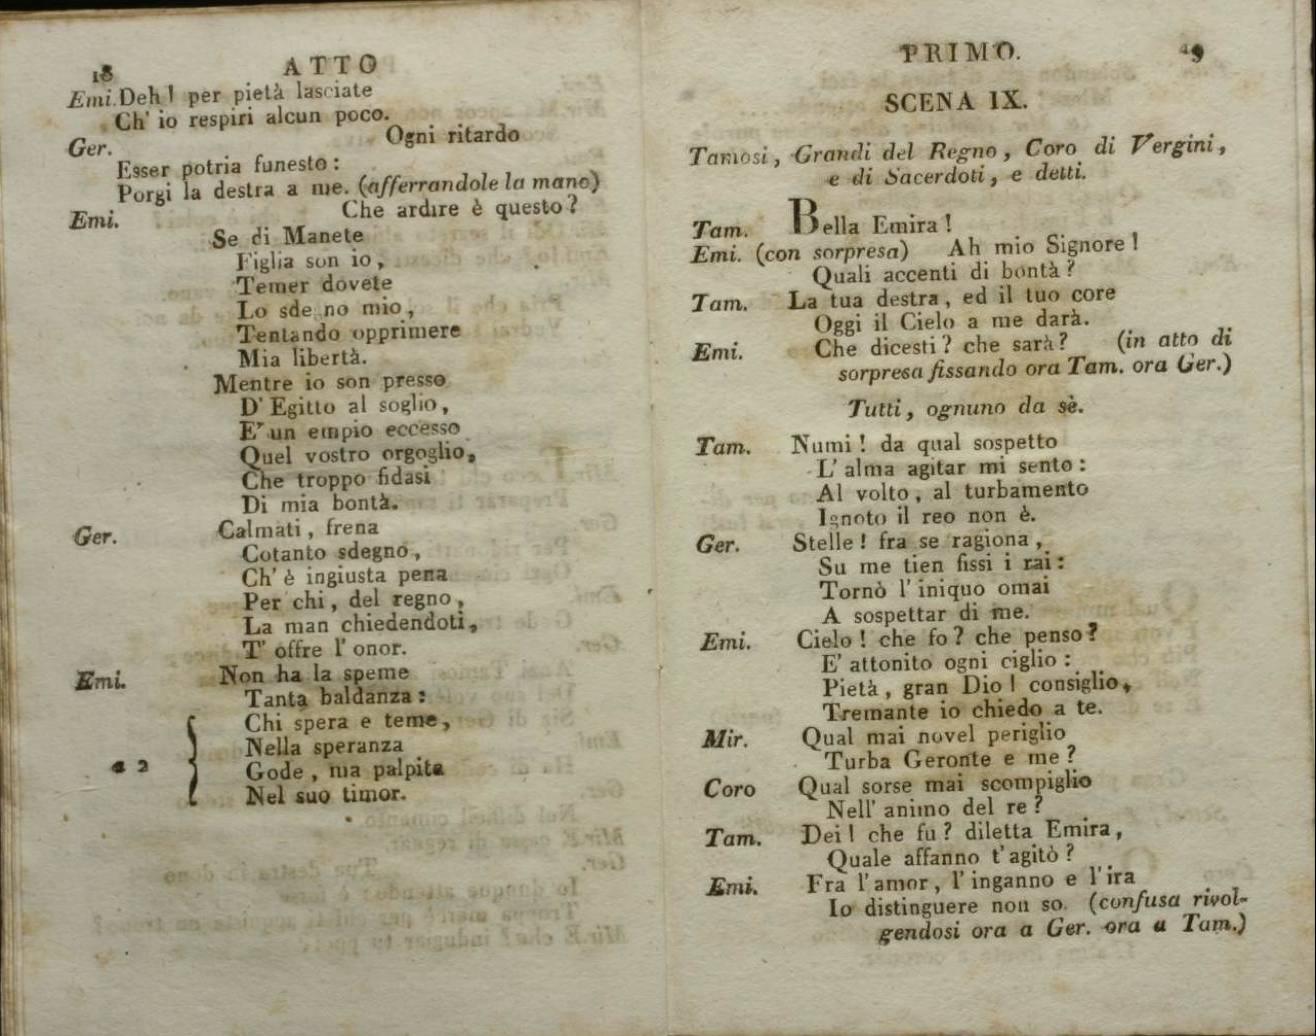 18 ATTO
Emi. Deh! per pietà lasciate
Ch' io respiri alcun poco.
Ger. Ogni ritardo
Esser potria funesto:
Porgi la destra a me. (afferrandole la mano)
Emi. Che ardire è questo?
Se di Manete
Figlia son io,
Temer dovete
Lo sdegno mio,
Tentando opprimere
Mia libertà.
Mentre io son presso
D' Egitto al soglio,
E' un empio eccesso
Quel vostro orgoglio,
Che troppo fidasi
Di mia bontà.
Ger. Calmati, frena
Cotanto sdegno,
Ch' è ingiusta pena
Per chi, del regno,
La man chiedendoti,
T' offre l' onor.
Emi. Non ha la speme
Tanta baldanza:
Chi spera e teme,
Nella speranza
a 2 Gode, ma palpita
Nel suo timor.
PRIMO. 19
SCENA IX.
Tamosi, Grandi del Regno, Coro di Vergini,
e di Sacerdoti, e detti.
Tam. Bella Emira!
Emi. (con sorpresa) Ah mio Signore!
Quali accenti di bontà?
Tam. La tua destra, ed il tuo core
Oggi il Cielo a me darà.
Emi. Che dicesti? che sarà? (in atto di
sorpresa fissando ora Tam. ora Ger.)
Tutti, ognuno da sè.
Tam. Numi! da qual sospetto
L' alma agitar mi sento:
Al volto, al turbamento
Ignoto il reo non è.
Ger. Stelle! fra se ragiona,
Su me tien fissi i rai:
Tornò l' iniquo omai
A sospettar di me.
Emi. Cielo! che fo? che penso?
E' attonito ogni ciglio:
Pietà, gran Dio! consiglio,
Tremante io chiedo a te.
Mir. Qual mai novel periglio
Turba Geronte e me?
Coro Qual sorse mai scompiglio
Nell' animo del re?
Tam. Dei! che fu? diletta Emira,
Quale affanno t' agitò?
Emi. Fra l' amor, l' inganno e l' ira
Io distinguere non so. (confusa rivol-
gendosi ora a Ger. ora a Tam.)